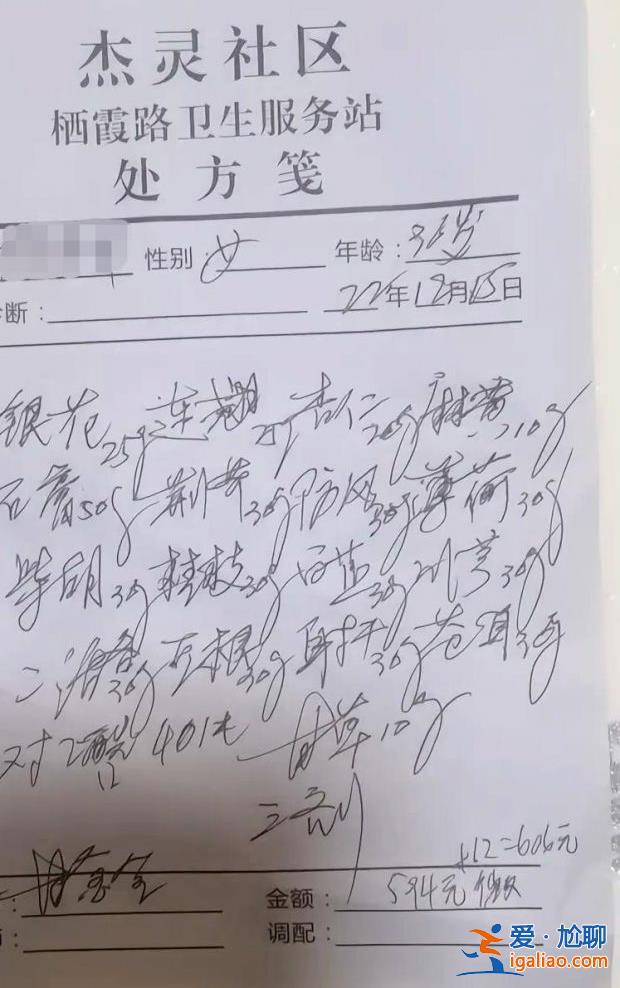 杰灵社区
栖霞路卫生服务站
处方笺
性别：女 年龄：36岁
诊断： 22年12月15日
银花25g 连翘25g 杏仁20g 麻黄10g
石膏50g 荆芥30g 防风30g 薄荷30g
柴胡30g 桂枝30g 白芷30g 川芎30g
30g 豆根30g 射干30g 苍耳
对乙酰 甘草10g
三剂
+12=606元
金额：594元
调配：
爱·尬聊
igaliao.com